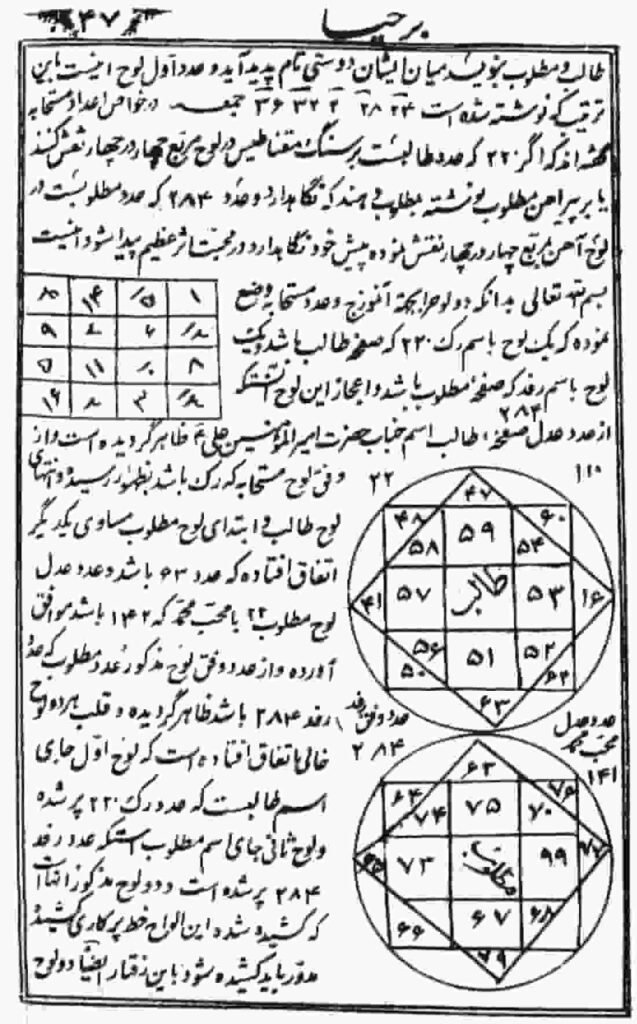 ۴۷ برحیا
طالب و مطلوب بنویسد میان ایشان دوستی تام پدید آید و عدد اول لوح اینست باین
ترتیب که نوشته شده است ۲۴ ۲۸ ۲ ۳۲ ۳۶ جمعه در خواص اعداد متحابه
گفته‌اند که اگر ۲۲۰ که عدد طالبست بر سنگ مقناطیس در لوح مربع چهار در چهار نقش کنند
یا بر پیراهن مطلوب نوشته بمطلوب دهند که نگاه دارد و عدد ۲۸۴ که عدد مطلوبست در
لوح آهن مربع چهار در چهار نقش نموده پیش خود نگاه دارد در محبت اثر عظیم پیدا شود اینست
بسم الله تعالی بدانکه دو لوح را بجهة آنموزج و عدد متحابه وضع
نموده که یک لوح باسم رک ۲۲۰ که صفحه طالب باشد و یک
لوح باسم رفد که صفحه مطلوب باشد و اعجاز این لوح آنستکه
۲۸۴
۱ ۱۴
۹
۸ ۱۱ ۵
۳ ۱۶
از عدد عدل صفحه طالب اسم جناب حضرت امیر المؤمنین علی ظاهر گردیده است و از
۱۱۰
۲۲
وفق لوح متحابه که رک باشد بظهور رسیده و انتهای
لوح طالب و ابتدای لوح مطلوب مساوی یکدیگر
اتفاق افتاده که عدد ۶۳ باشد و عدد عدل
لوح مطلوب ۲۲ با محب محمد که ۱۴۲ باشد موافق
آورده و از عدد وفق لوح مذکور عدد مطلوب که عدد
رفد ۲۸۴ باشد ظاهر گردیده و قلب هر دو لوح
خالی اتفاق افتاده است که لوح اول جای
اسم طالبست که عدد رک ۲۲۰ پر شده
و لوح ثانی جای اسم مطلوب استکه عدد رفد
۲۸۴ پر شده است و دو لوح مذکور را
که کشیده شده این الواح خط پرکاری کشیده
مدور باید کشیده شود باین رفتار ایضا دو لوح
۴۷
۴۸ ۶۰
۵۸ ۵۹ ۵۴
۴۱ ۵۷ طالب ۵۳ ۱۶
۵۶ ۵۱ ۵۲
۵۰ ۶۲
۶۳
عدد وفق رفد
۲۸۴
عدد عدل
محب محمد
۱۴۱
۶۳
۶۴ ۷۶
۷۴ ۷۵ ۷۰
۷۳ مطلوب ۹۹ ۷۷
۶۶ ۶۷ ۶۸
۷۹